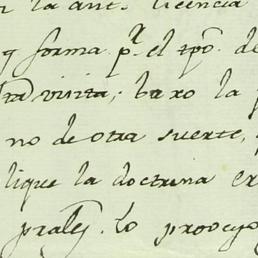 la ant. licencia
q forma pa. el tpõ. de
visita; baxo la p
no de otra suerte,
lique la doctrina en
prales. lo proveyo